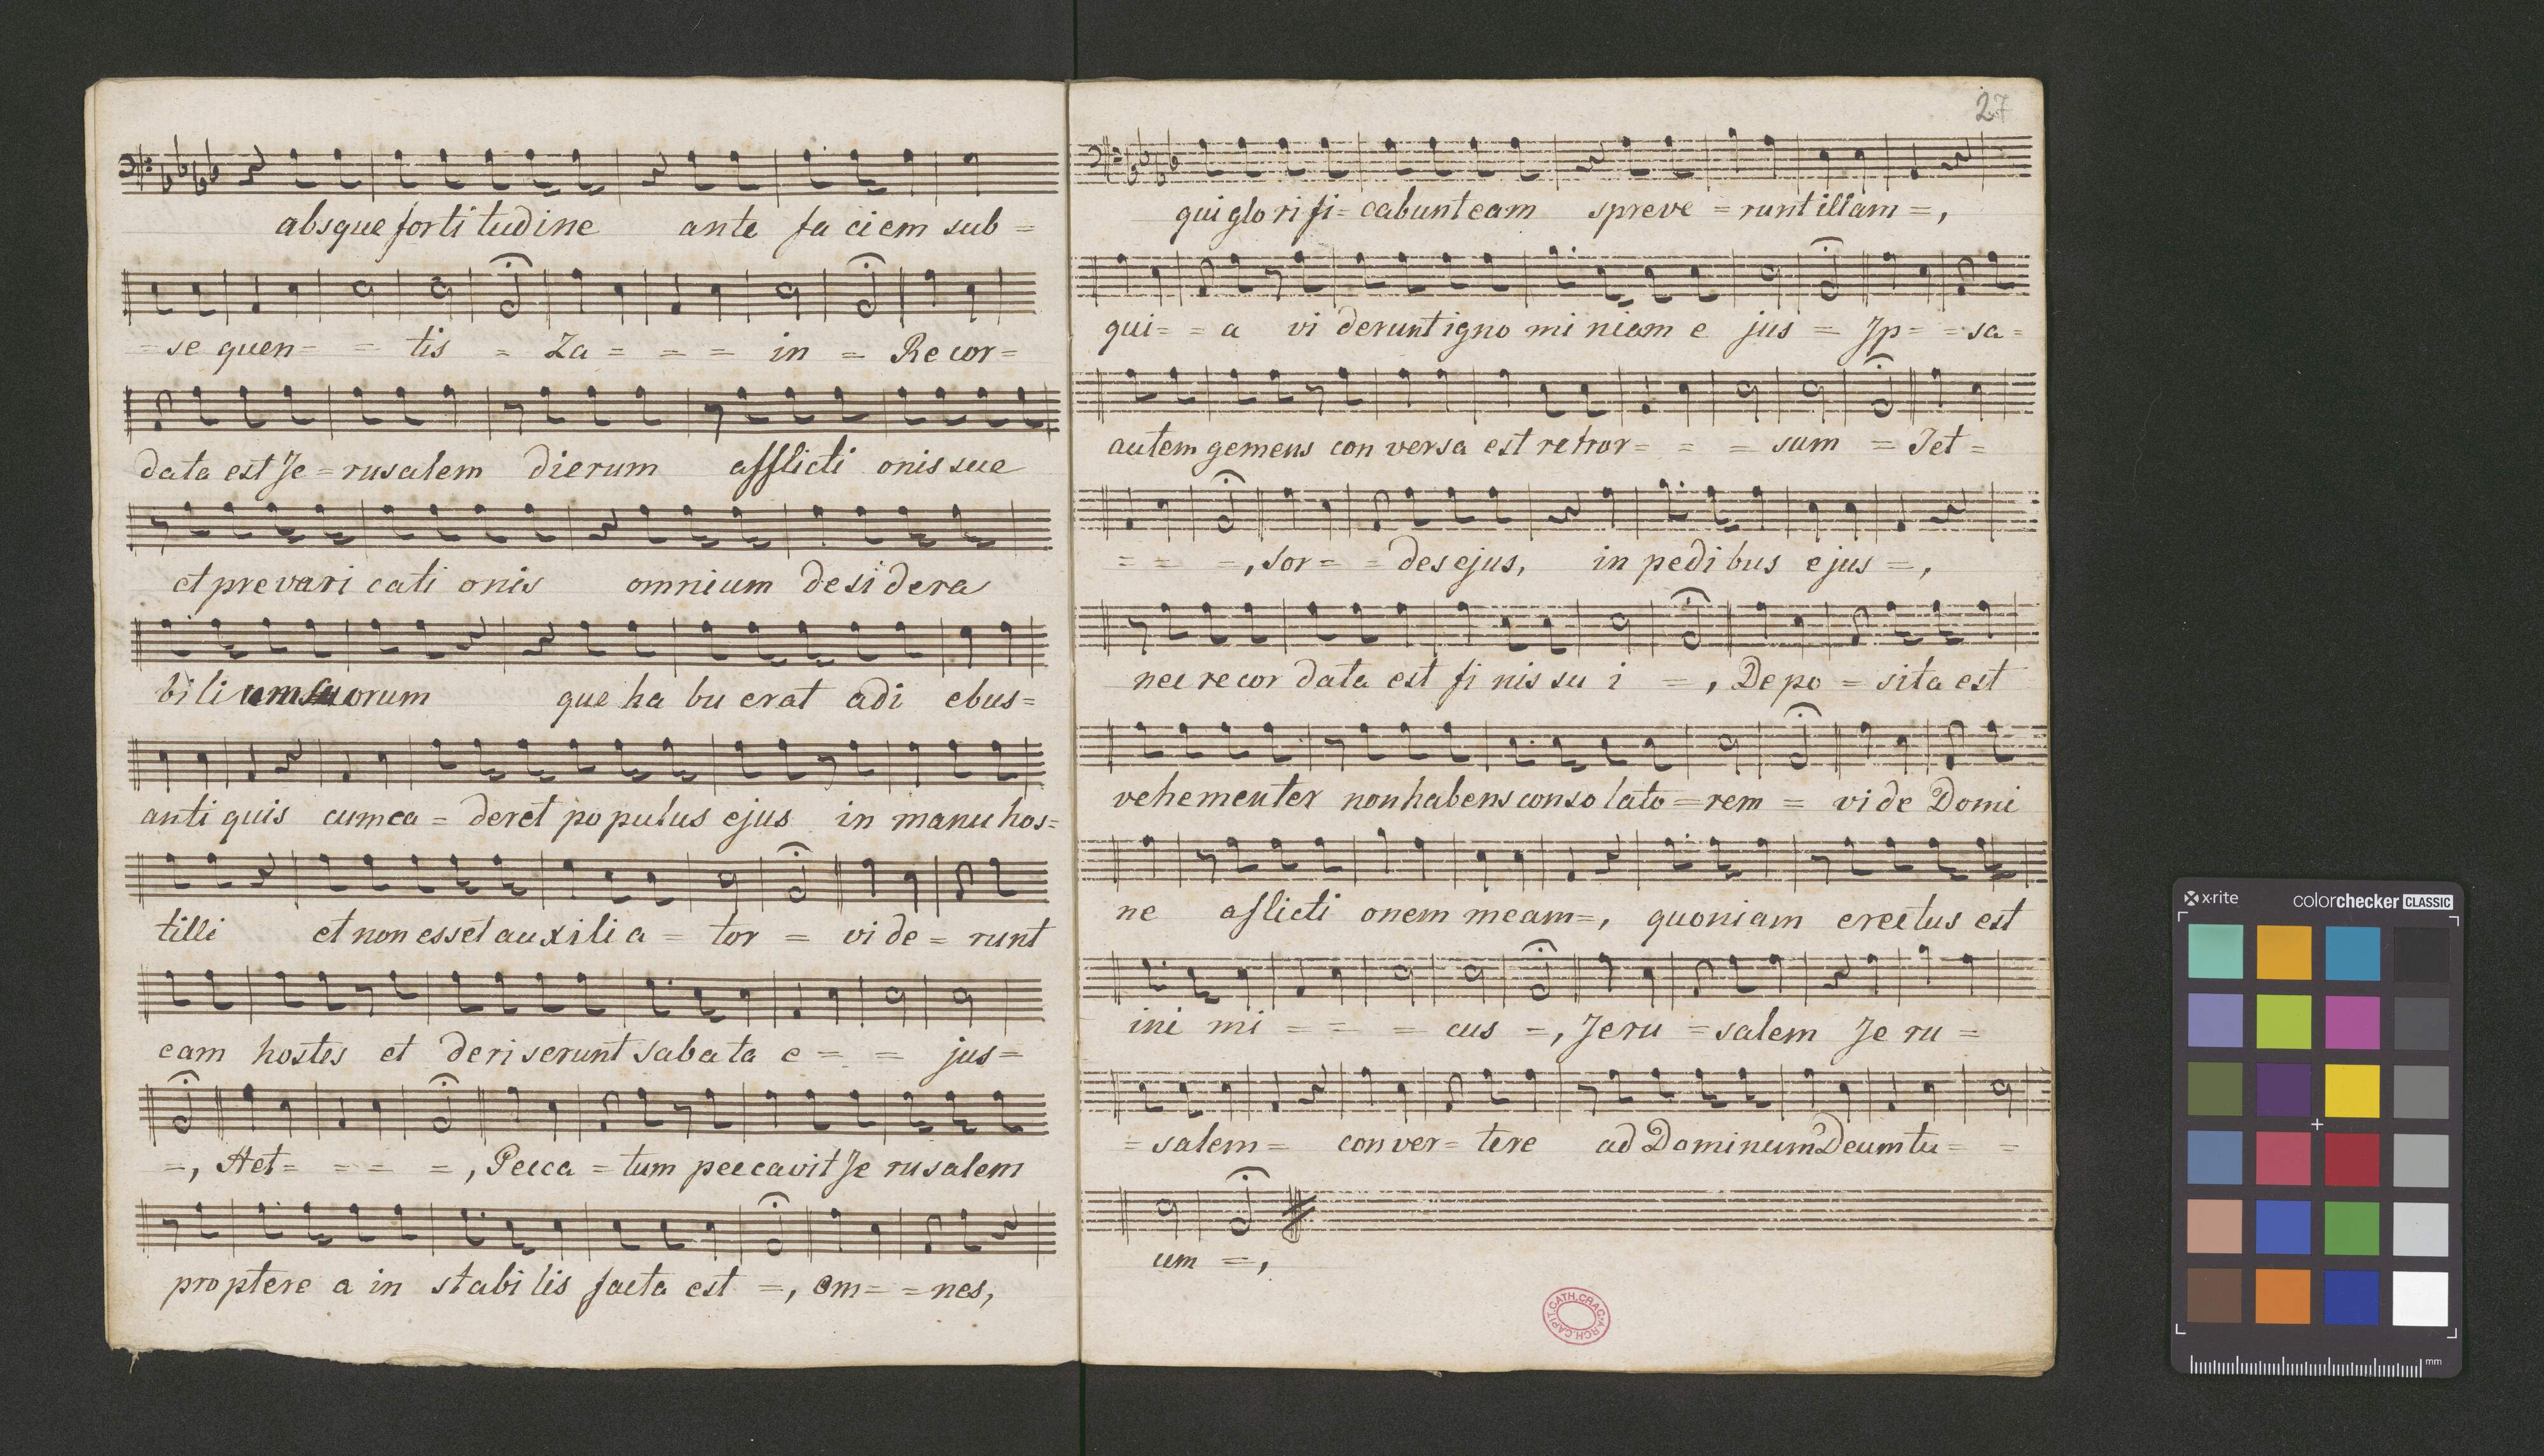 absque forti tudine ante fa ciem sub =
= se quen = = tis = Za = = = in = Re cor =
data est Je = rusalem dierum afflicti onis sue
et prevari cati onis omnium desi dera
bi li um suorum que ha bu erat adi ebus =
anti quis cum ca = deret po pulus ejus in manu hos =
tilli et non esset auxili a = tor = vi de = runt
eam hostes et deri serunt sabata e = = jus =
=, Het = = = =, Pecca = tum peccavit Je rusalem
proptere a in stabi lis facta est =, om = = nes,
27
qui glo ri fi = cabunt eam spreve = runt illam =,
qui = = a vi derunt igno mi niam e jus = Jp = = sa =
autem gemens con versa est retror = = = sum = Tet =
= = =, sor = = des ejus, in pedi bus ejus =,
nec re cor data est fi nis su i =, De po = sita est
vehementer non habens conso lato = rem = vi de Domi
ne aflicti onem meam =, quoniam erectus est
ini mi = = = cus =, Jeru = salem Je ru =
= salem = con ver = tere ad Dominum Deum tu = =
um =,
CAPIT. CATH. CRAC. ARCH.
x·rite colorchecker CLASSIC
mm